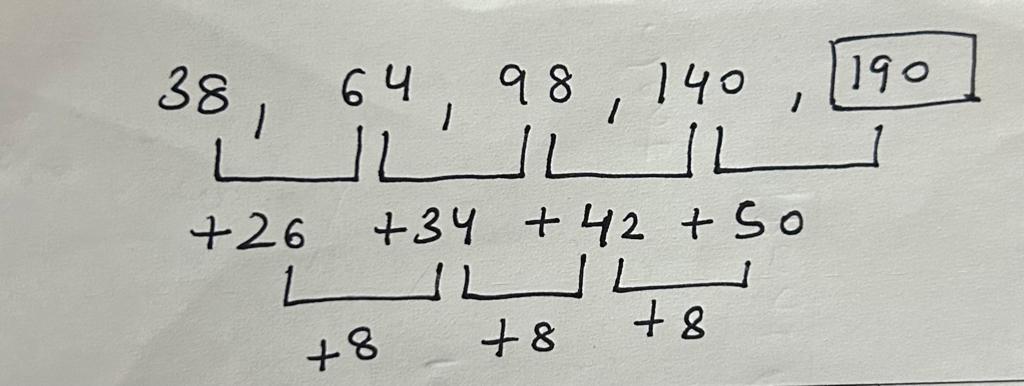 38, 64, 98, 140, 190
+26 +34 +42 +50
+8 +8 +8